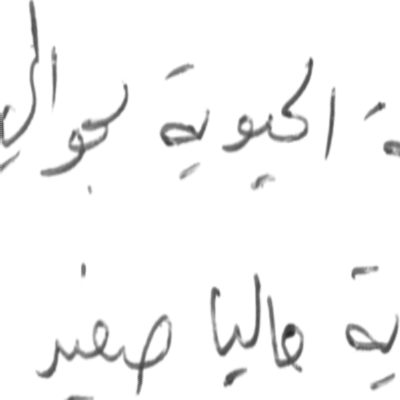 ة الحيوية بحوالي
ية عاليا صغير